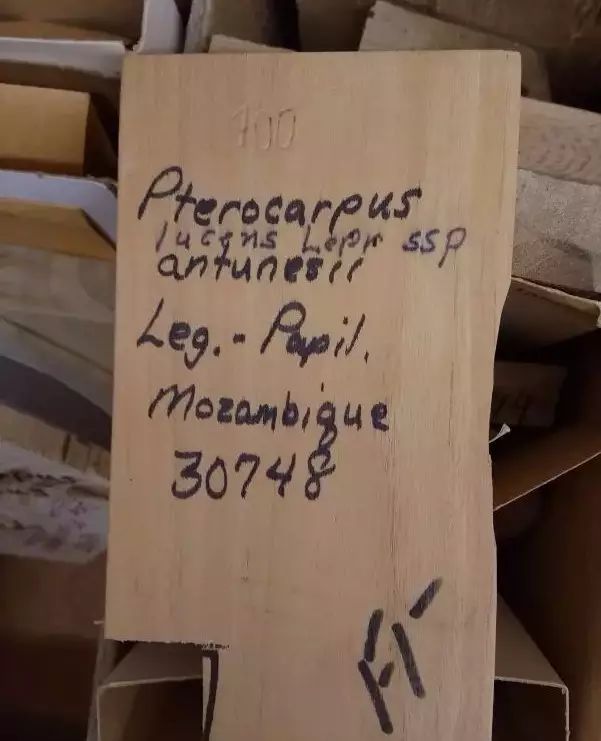 700
Pterocarpus
lucens Lepr ssp
antunesii
Leg.- Papil.
Mozambique
30748